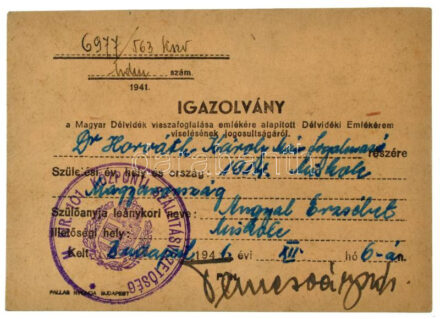 6977/563 kszv
szám.
1941.
IGAZOLVÁNY
a Magyar Délvidék visszafoglalása emlékére alapított Délvidéki Emlékérem
viselésének jogosultságáról.
Dr Horváth Károly részére
Születési év, hely és ország: 1914. Miskolc
Magyarország
Szülőanyja leánykori neve: Angyal Erzsébet
Illetőségi hely: Miskolc
Kelt: Budapest 1941 évi XII. hó 6-án.
PALLAS NYOMDA BUDAPEST